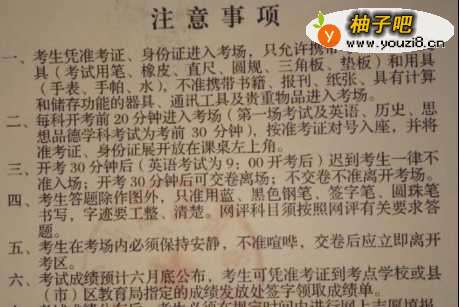 注意事项
柚子吧
www.youzi8.cn
一、考生凭准考证、身份证进入考场，只允许携带
具（考试用笔、橡皮、直尺、圆规、三角板、垫板）和用具
（手表、手帕、水），不准携带书籍、报刊、纸张、具有计算
和储存功能的器具、通讯工具及贵重物品进入考场。
二、每科开考前 20 分钟进入考场（第一场考试及英语、历史、思
想品德学科考试为考前 30 分钟），按准考证对号入座，并将
准考证、身份证展开放在课桌左上角。
三、开考 30 分钟后（英语考试为 9：00 开考后）迟到考生一律不
准入场；开考 30 分钟后可交卷离场；不交卷不准离开考场。
四、考生答题除作图外，只准用蓝、黑色钢笔、签字笔、圆珠笔
书写，字迹要工整、清楚。网评科目须按照网评有关要求答
题。
五、考生在考场内必须保持安静，不准喧哗，交卷后应立即离开
考区。
六、考试成绩预计六月底公布，考生可凭准考证到考点学校或县
（市）区教育局指定的成绩发放处签字领取成绩单。